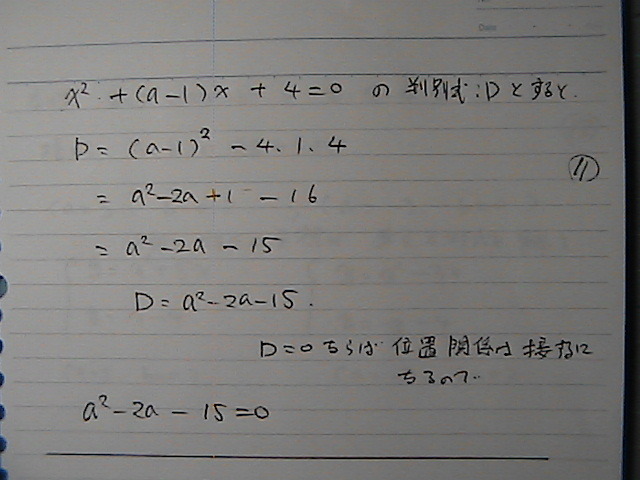 x² + (a-1)x + 4 = 0 の 判別式:Dとすると.
D = (a-1)² - 4.1.4
⑪
= a²-2a+1 - 16
= a²-2a - 15
D = a²-2a-15.
D=0ならば 位置関係は 接するに
なるので..
a²-2a - 15 = 0